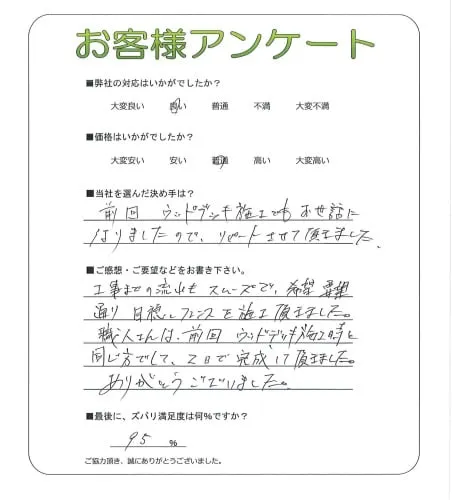 お客様アンケート
■弊社の対応はいかがでしたか？
大変良い　良い　普通　不満　大変不満
■価格はいかがでしたか？
大変安い　安い　普通　高い　大変高い
■当社を選んだ決め手は？
前回 ウッドデッキ施工でもお世話に
なりましたので、リピートさせて頂きました。
■ご感想・ご要望などをお書き下さい。
工事までの流れもスムーズで、希望 要望
通り 目隠しフェンスを施工頂きました。
職人さんは、前回 ウッドデッキ施工時と
同じ方でして、2日で完成して頂きました。
ありがとうございました。
■最後に、ズバリ満足度は何%ですか？
95 %
ご協力頂き、誠にありがとうございました。